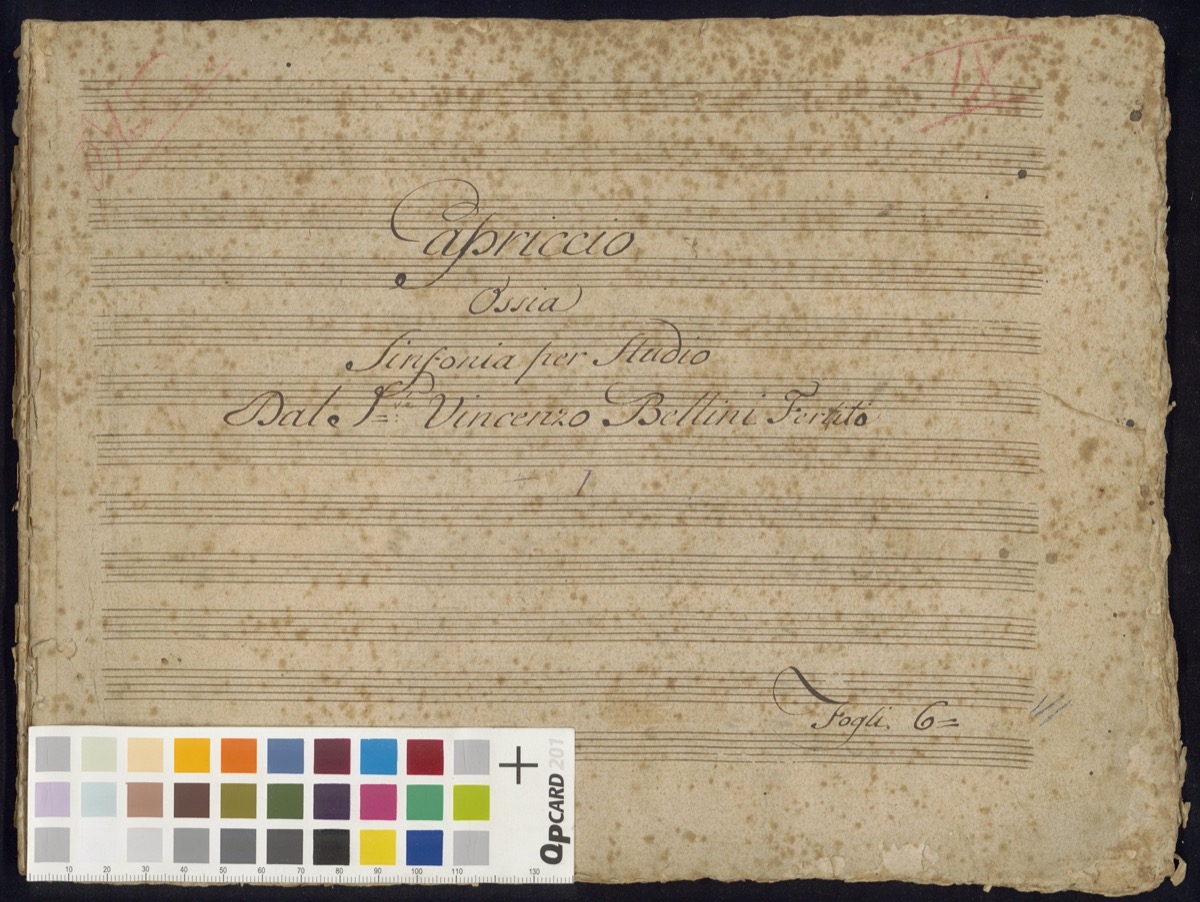 IX
Capriccio
Ossia
Sinfonia per Studio
Dal Sre Vincenzo Bellini Ferlito
I
Fogli 6=
QPCARD 201
10 20 30 40 50 60 70 80 90 100 110 130